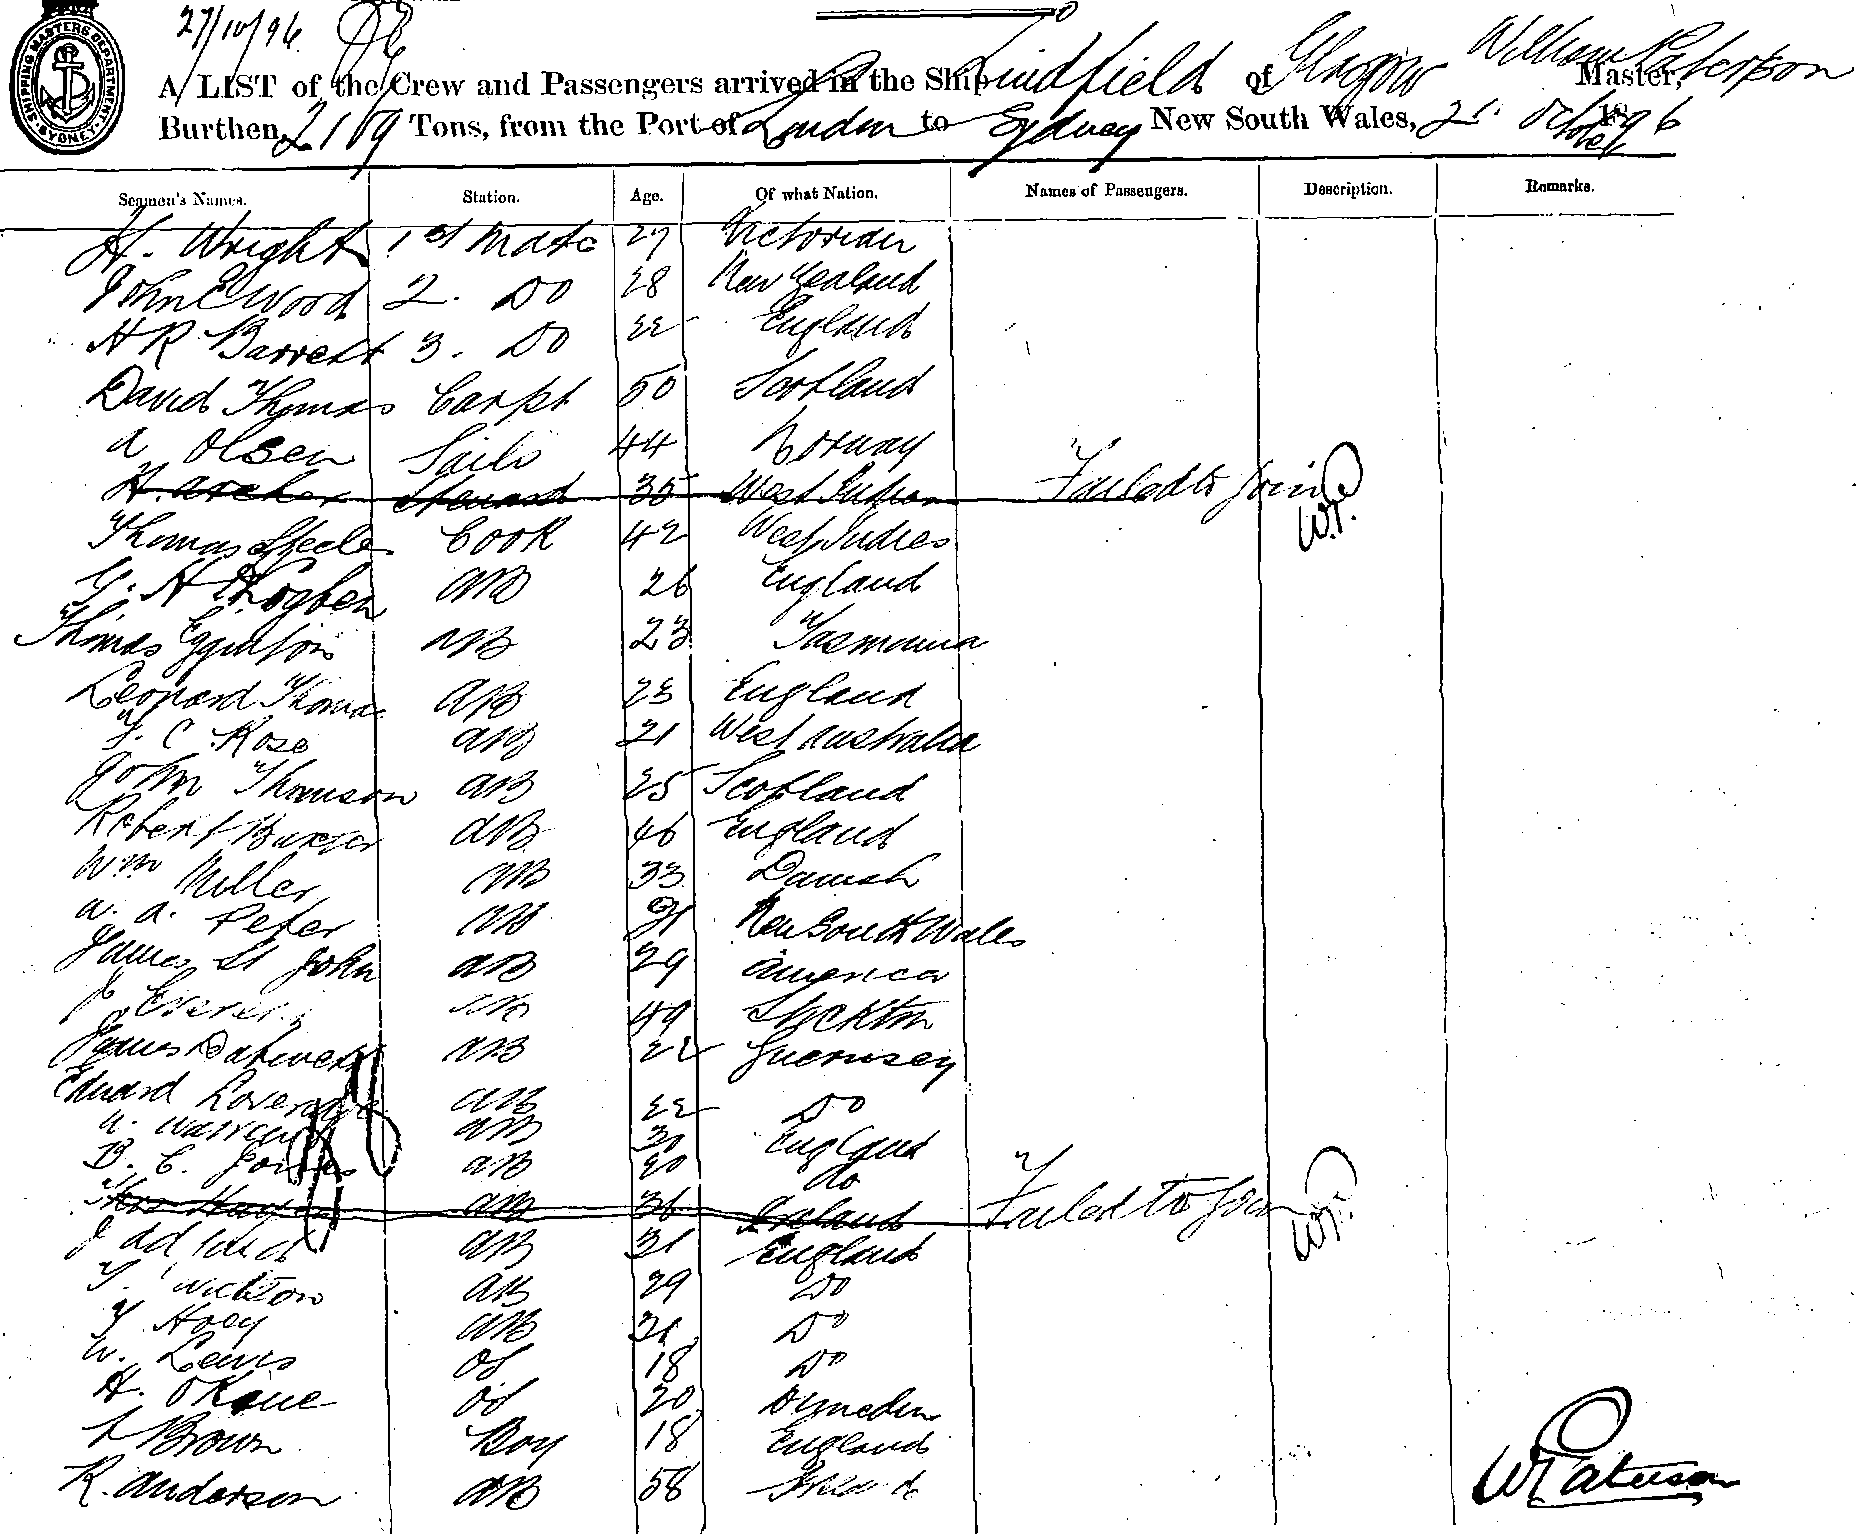 SHIPPING MASTERS DEPARTMENT SYDNEY
27/10/96
A LIST of the Crew and Passengers arrived in the Ship Lindfield of Glasgow William Paterson Master,
Burthen 2169 Tons, from the Port of London to Sydney New South Wales, 21 October 1896
Seamen's Names. Station. Age. Of what Nation. Names of Passengers. Description. Remarks.
H. Wright 1st Mate 27 Victorian
John E Wood 2. Do 28 New Zealand
H R Barrett 3. Do 22 England
David Thomas Carpt 50 Scotland
A Olsen Sails 44 Norway
H. Archer Steward 35 West Indian Failed to join W.P.
Thomas Steele Cook 42 West Indies
G. H Hogben AB 26 England
Thomas Egginton AB 23 Tasmania
Leonard Thomas AB 23 England
C Rose AB 21 West Australia
John Thomson AB 25 Scotland
Robert Baxter AB 46 England
Wm Miller AB 33 Danish
A. A. Peter AB 21 New South Wales
James St John AB 29 America
J AB 49 Stockton
James AB 22 Guernsey
Edward Loveridge AB 22 Do
A. Warren AB 30 England
B. C. Jones AB 20 do
Thos AB 36 Ireland Failed to join W.P.
J AB 31 England
T. AB 29 Do
T Hoey AB 31 Do
W. Lewis OS 18 Do
H. OKane OS 20 Dunedin
Brown Boy 18 England
R. Anderson AB 58
W Paterson